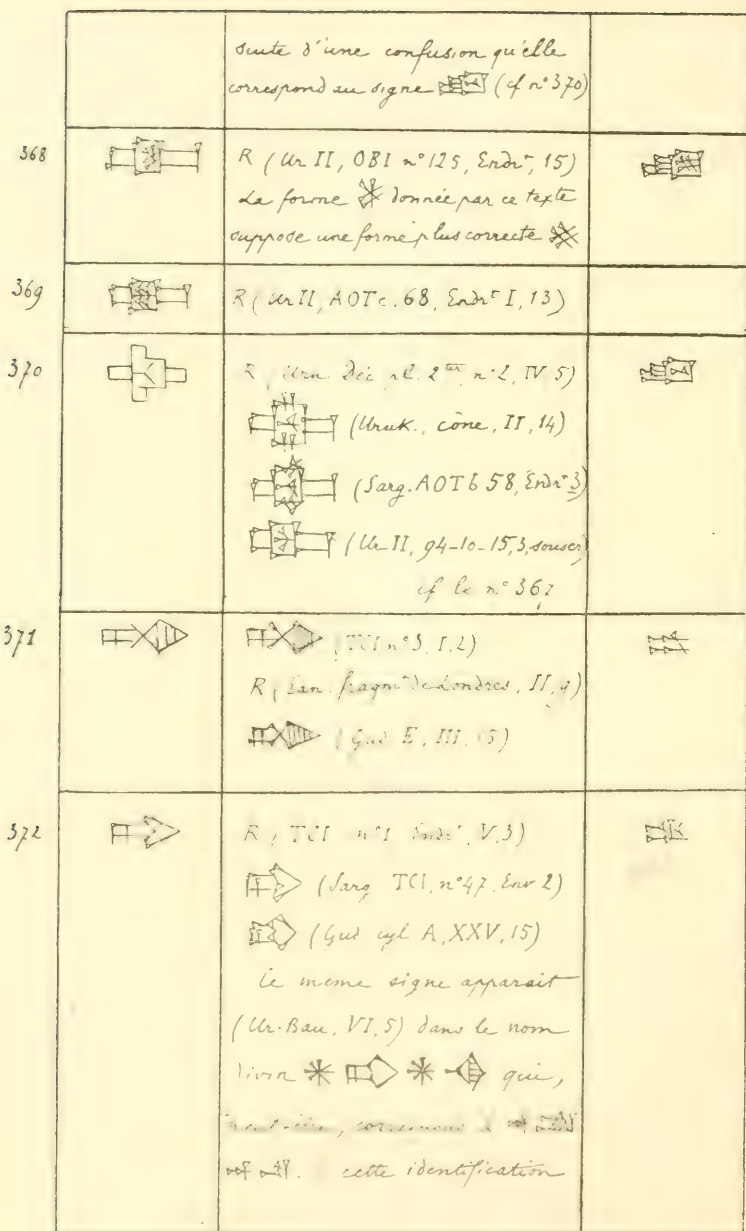 suite d'une confusion qu'elle
correspond au signe (cf n° 370)
368 R (Ur II, OBI n° 125, Endrt, 15)
La forme donnée par ce texte
suppose une forme plus correcte
369 R (Ur II, AOTc. 68, Endrt I, 13)
370 R, Urn. Déc pl. 2ter, n° 2, IV 5)
(Uruk., cône, II, 14)
(Sarg. AOTb 58, Endrt 3)
(Ur II, 94-10-15, 3, souscr)
cf le n° 367
371 (TCI n° 3, I, 2)
R, Ean. fragmt de Londres, II, 9)
(Gud E, III, 15)
372 R, TCI n° 1 Endrt, V, 3)
(Sarg TCI, n° 47, Env 2)
(Gud cyl A, XXV, 15)
Le meme signe apparait
(Ur-Bau, VI, 5) dans le nom
divin qui,
cette identification